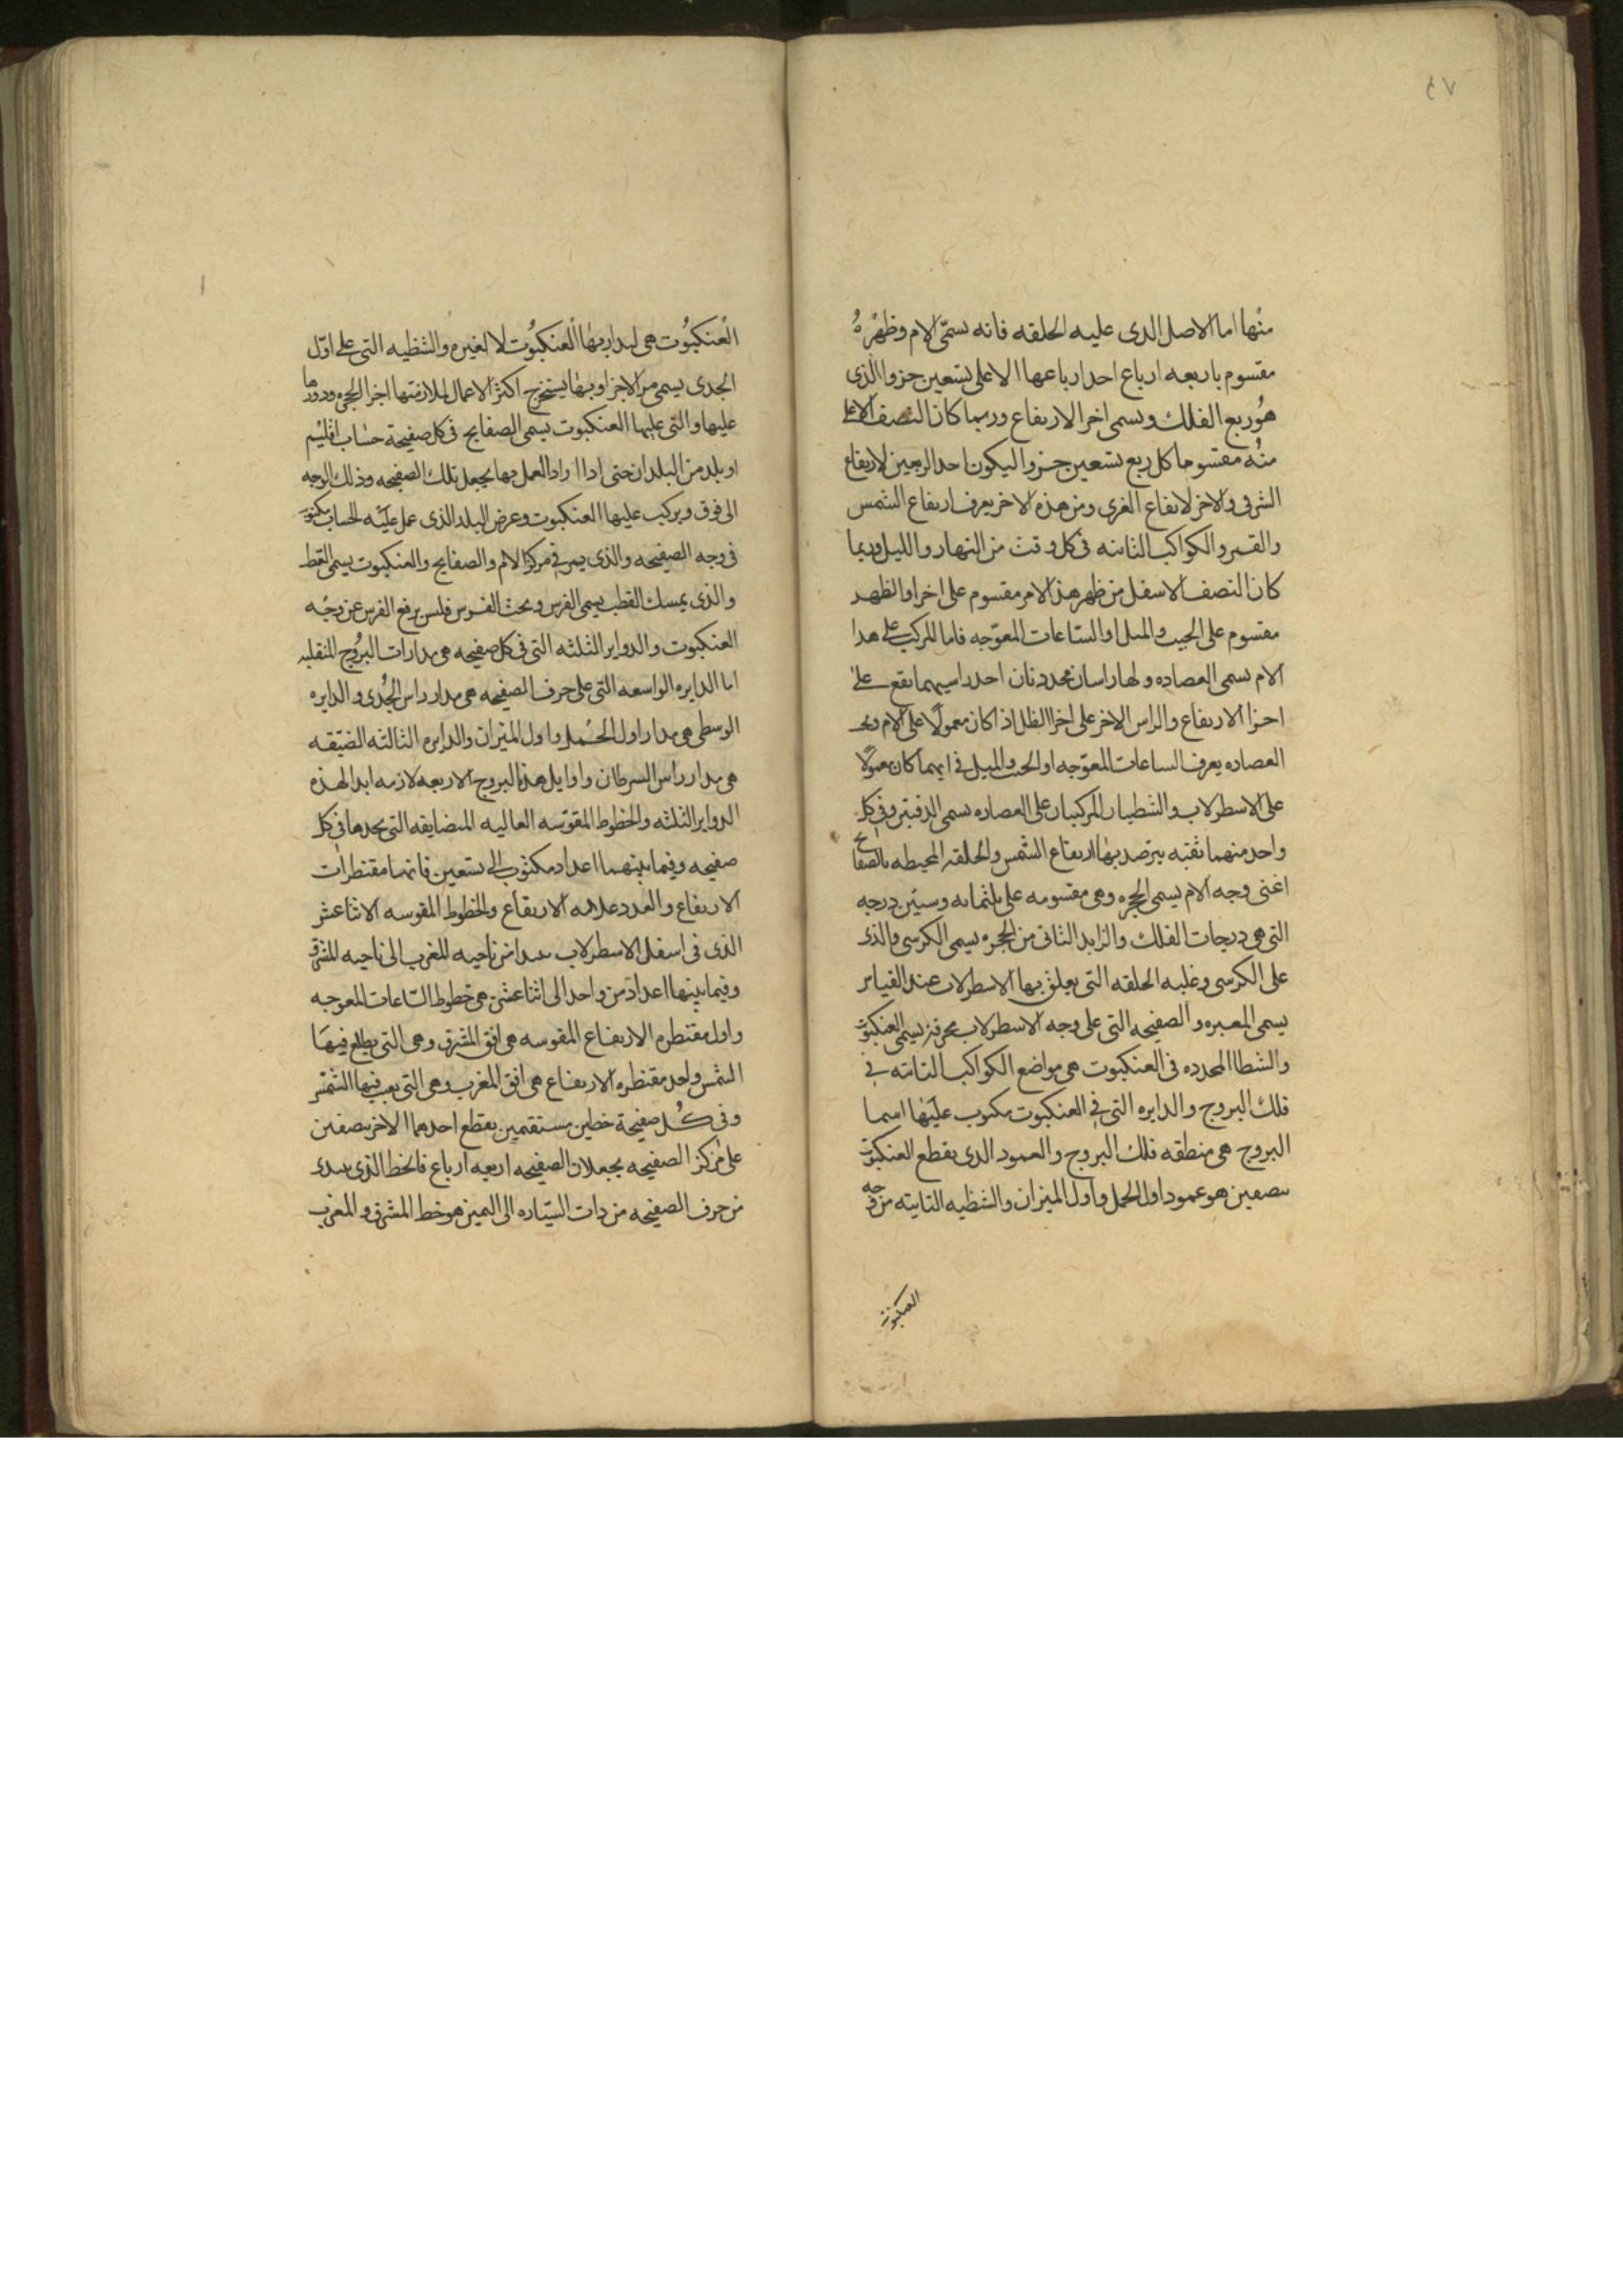 ٤٧
منها اما الاصل الدى عليه الحلقه فانه يسمّى الام وظهره
مقسوم باربعه ارباع احد ارباعها الاعلى بتسعين جزوا الذى
هو ربع الفلك ويسمى اخرا الارتفاع وربما كان النصف الاعلى
منه مقسوما كل ربع بتسعين جزوا ليكون احد الربعين لارتفاع
الشرقى والاخر لارتفاع الغربى ومن هذه الاخر يعرف ارتفاع الشمس
والقمر والكواكب الثابته فى كل وقت من النهار والليل وربما
كان النصف الاسفل من ظهر هذا الام مقسوم على اخرا والظهد
مقسوم على الجيب والميل او الساعات المعوّجه فاما المركب على هدا
الام يسمى العصاده ولها راسان محددتان احد راسيهما يقع على
احزا الارتفاع والراس الاخر على اخرا الظل اذ كان معمولًا على الام
العصاده يعرف الساعات المعوّجه او الجيب والميل فى ايهما كان معمولًا
على الاسطرلاب والشطيتان المركبتان على العصاده يسمى الدفتين وفى كل
واحد منهما ثقبه يترصد بها ارتفاع الشمس والحلقه المحيطه بالصفايح
اعنى وجه الام يسمى الحجره وهى مقسومه على ثلثمايه وستين درجه
التى هى دريجات الفلك والزايد الثانى من الحجره يسمى الكرسى والذى
على الكرسى وعليه الحلقه التى يعلق بها الاسطرلاب عند القياس
يسمى المعبره والصفيحه التى على وجه الاسطرلاب محرفه يسمى العنكبوت
والشطايا المحدده فى العنكبوت هى مواضع الكواكب الثابته فى
فلك البروج والدايره التى فى العنكبوت مكتوب عليها اسما
البروج هى منطقه فلك البروج والعمود الدى يقطع العنكبوت
بنصفين هو عمود اول الحمل واول الميزان والشظيه الثابته من وجه
العنكبوت
العنكبوت هى ليدار بها العنكبوت لا لغيره والشظيه التى على اوّل
الجدى يسمى مرى الاجزا وبها يستخرج اكثر الاعمال لملازمتها اجزا الحجره ودورها
عليها والتى عليها العنكبوت يسمى الصفايح فى كل صفيحة حساب اقليم
او بلد من البلدان حتى ادا اراد العمل بها يجعل تلك الصفيحه وذلك الوجه
الى فوق ويركب عليها العنكبوت وعرض البلد الذى عمل عليه الحساب مكتوب
فى وجه الصفيحه والذى يمر فى مركز الام والصفايح والعنكبوت يسمى القطب
والذى يمسك القطب يسمى الفرس وتحت الفرس فلس يرفع الفرس عن وجه
العنكبوت والدواير الثلثه التى فى كل صفيحه هى مدارات البروج المنقلبه
اما الدايره الواسعه التى على حرف الصفيحه هى مدار راس الجدى والدايره
الوسطى هى مدار اول الحمل واول الميزان والدايره الثالثه الضيّقه
هى مدار راس السرطان واوايل هذه البروج الاربعه لازمه ابدا لهذه
الدواير الثلثه والخطوط المقوّسه العاليه المتضايقه التى تجدها فى كل
صفيحه وفيما بينهما اعداد مكتوب الى تسعين فانها مقنطرات
الارتفاع والعدد علامه الارتفاع والخطوط المقوسه الاثناعشر
الذى فى اسفل الاسطرلاب تبدا من ناحيه المغرب الى ناحيه المشرق
وفيما بينها اعداد من واحد الى اثنا عشر هى خطوط الساعات المعوجه
واول مقنطره الارتفاع المقوسه هى افق المشرق وهى التى يطلع فيها
الشمس واحد مقنطره الارتفاع هى افق المغرب وهى التى يغيب فيها الشمس
وفى كل صفيحة خطين مستقيمين يقطع احدهما الاخر بنصفين
على مركز الصفيحه يجعلان الصفيحه اربعه ارباع فالخط الذى يبتدى
من حرف الصفيحه من ذات اليساره الى اليمين هو خط المشرق والمغرب